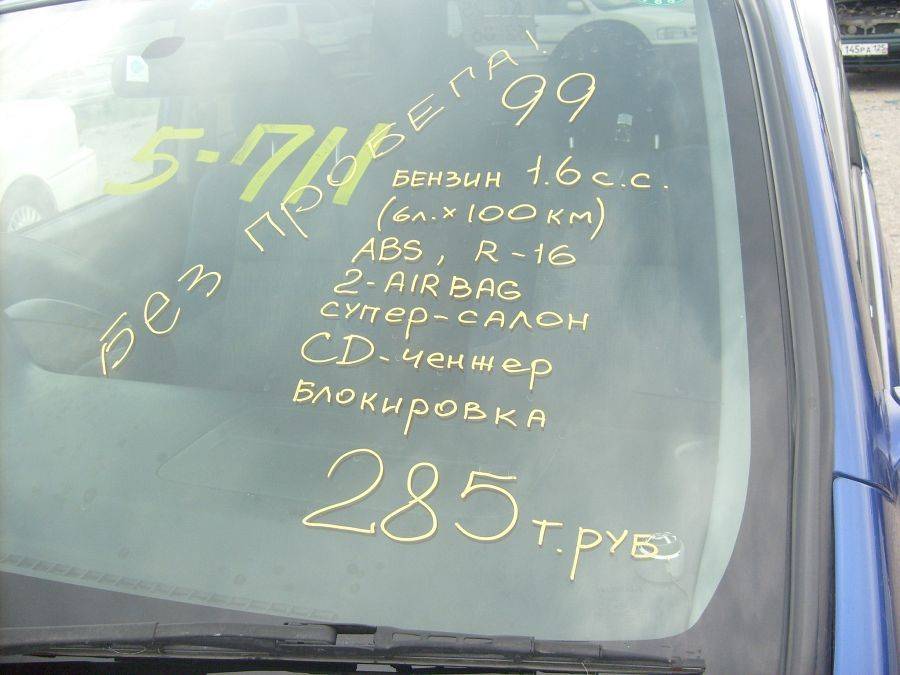 БЕЗ ПРОБЕГА!
99
5-711
БЕНЗИН 1.6 с.с.
(6л.×100 км)
ABS, R-16
2-AIRBAG
СУПЕР-САЛОН
CD-ченжер
Блокировка
285 т.руб
145РА 125